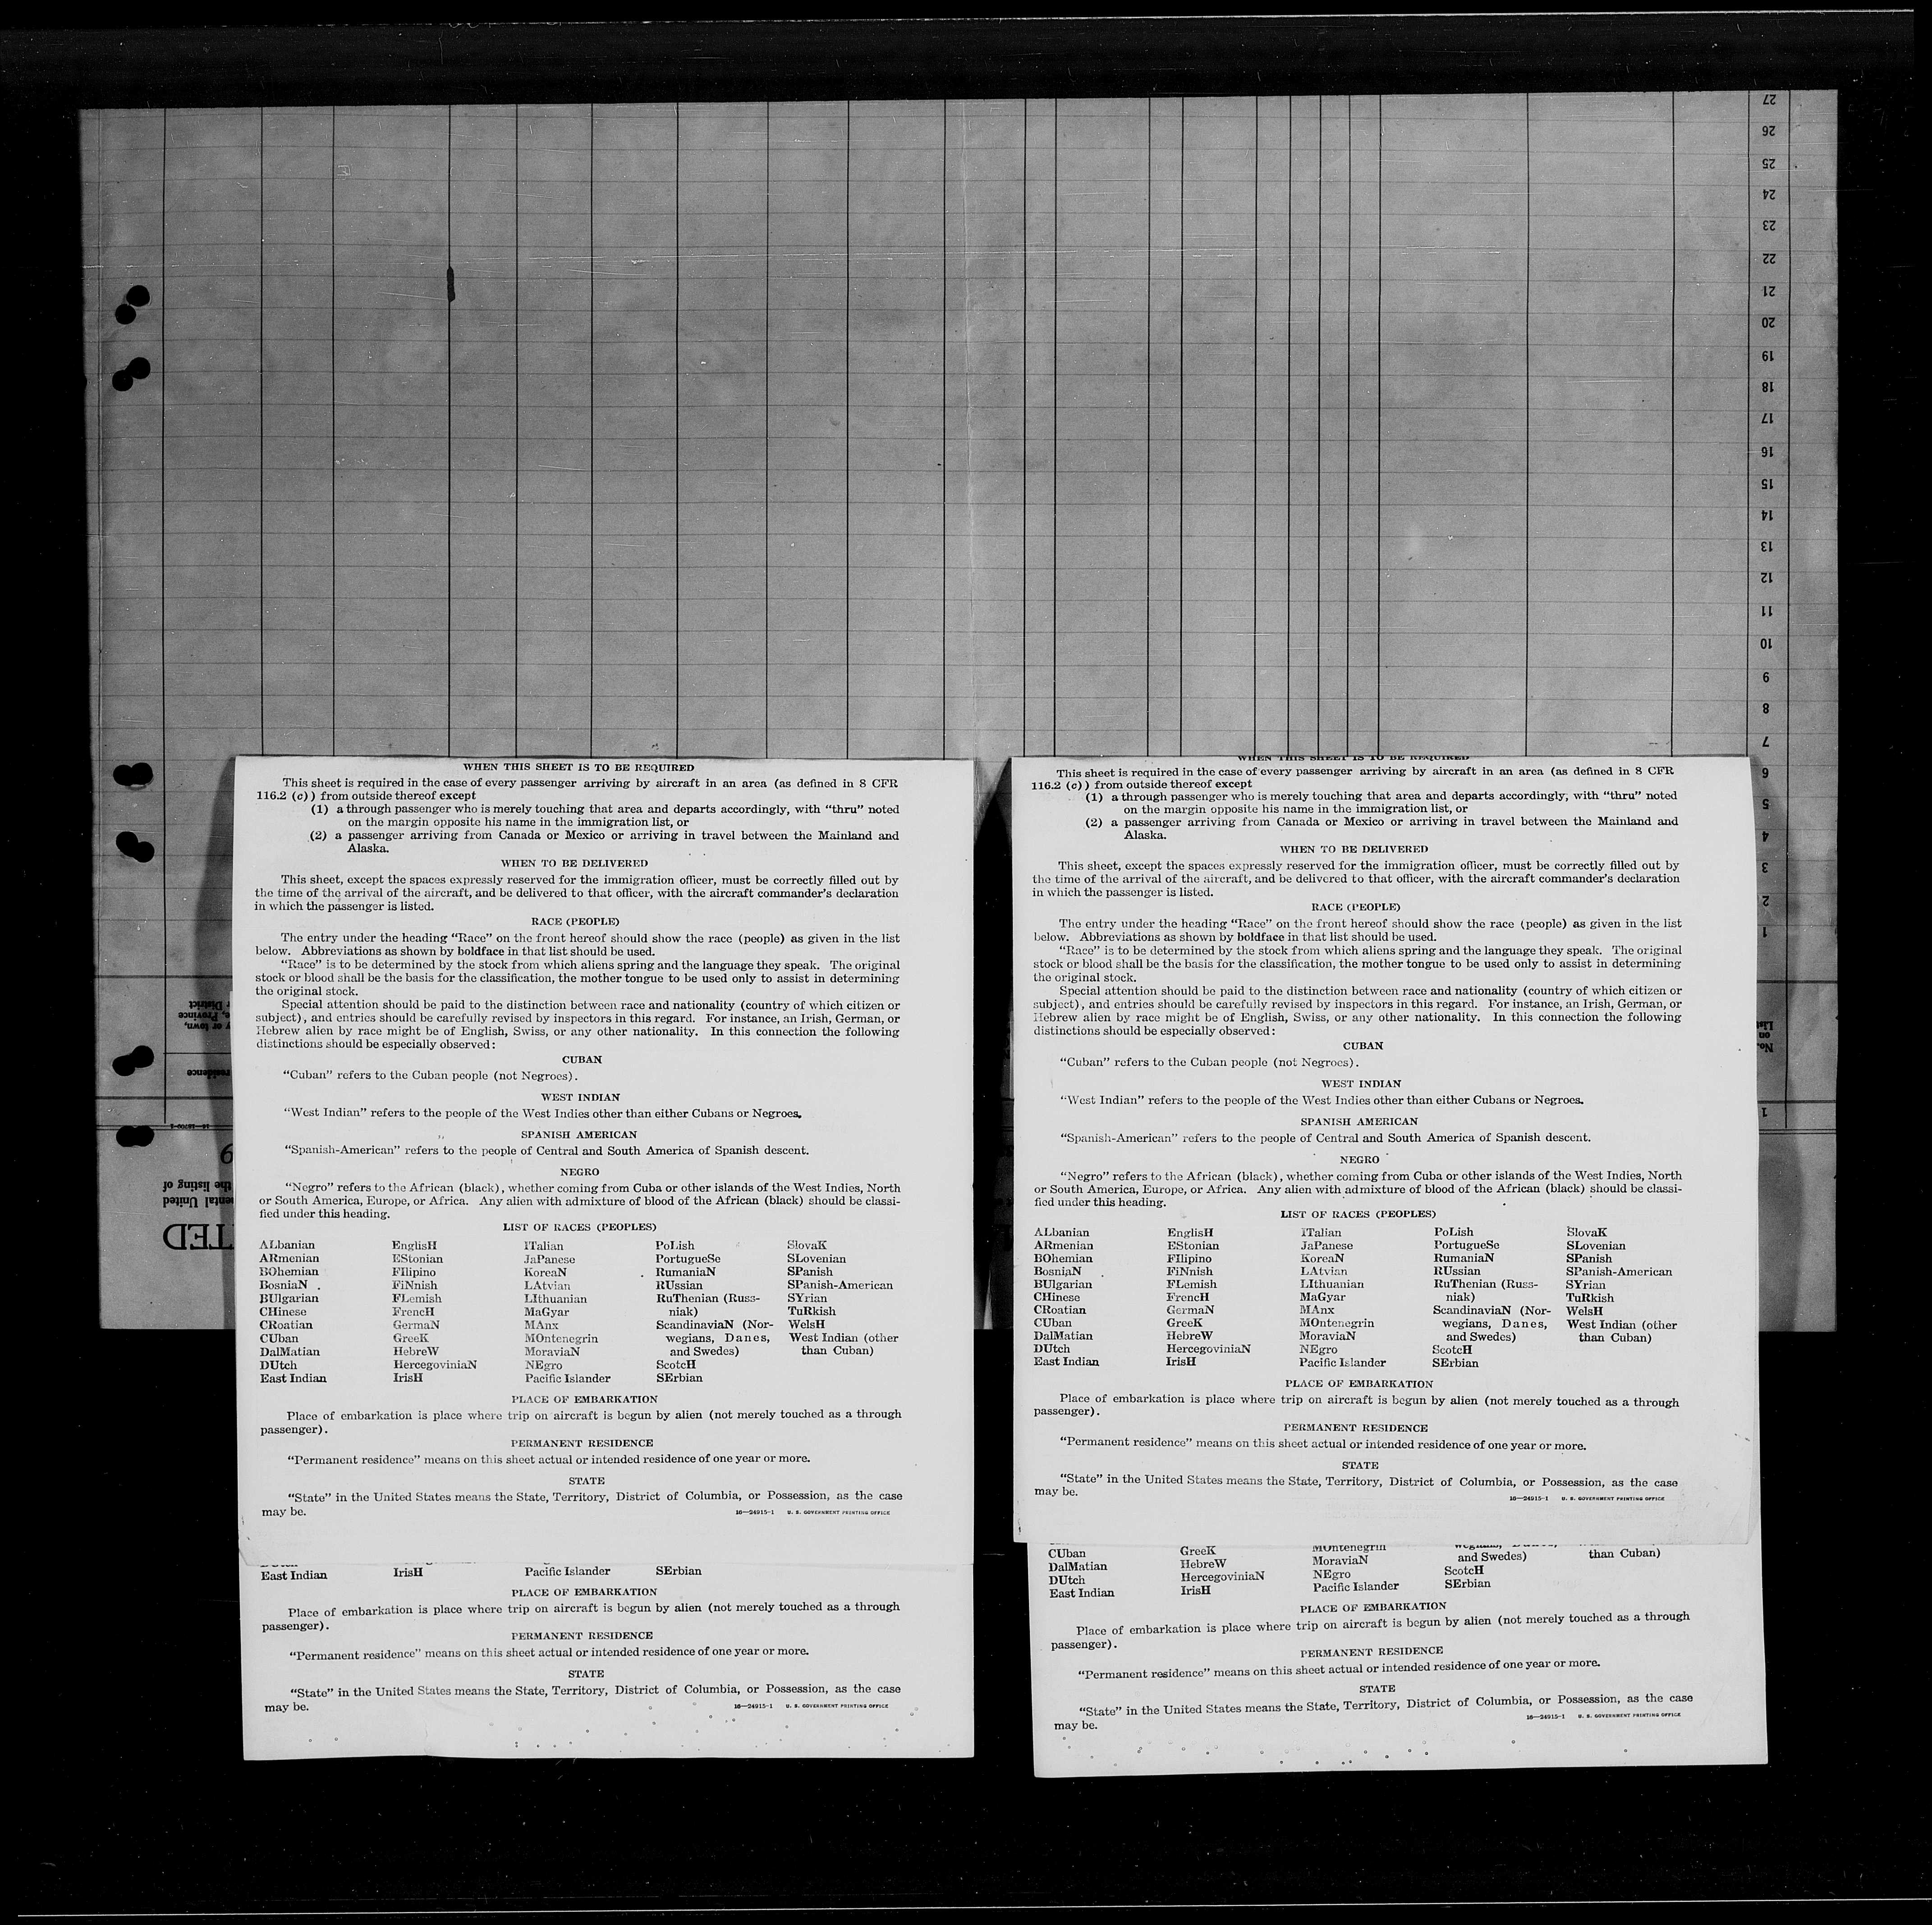 27
26
25
24
23
22
21
20
19
18
17
16
15
14
13
12
11
10
9
8
7
6
5
4
3
2
1
No.
on
List
1
WHEN THIS SHEET IS TO BE REQUIRED
This sheet is required in the case of every passenger arriving by aircraft in an area (as defined in 8 CFR
116.2 (c)) from outside thereof except
(1) a through passenger who is merely touching that area and departs accordingly, with “thru” noted
on the margin opposite his name in the immigration list, or
(2) a passenger arriving from Canada or Mexico or arriving in travel between the Mainland and
Alaska.
WHEN TO BE DELIVERED
This sheet, except the spaces expressly reserved for the immigration officer, must be correctly filled out by
the time of the arrival of the aircraft, and be delivered to that officer, with the aircraft commander’s declaration
in which the passenger is listed.
RACE (PEOPLE)
The entry under the heading “Race” on the front hereof should show the race (people) as given in the list
below. Abbreviations as shown by boldface in that list should be used.
“Race” is to be determined by the stock from which aliens spring and the language they speak. The original
stock or blood shall be the basis for the classification, the mother tongue to be used only to assist in determining
the original stock.
Special attention should be paid to the distinction between race and nationality (country of which citizen or
subject), and entries should be carefully revised by inspectors in this regard. For instance, an Irish, German, or
Hebrew alien by race might be of English, Swiss, or any other nationality. In this connection the following
distinctions should be especially observed:
CUBAN
“Cuban” refers to the Cuban people (not Negroes).
WEST INDIAN
“West Indian” refers to the people of the West Indies other than either Cubans or Negroes.
SPANISH AMERICAN
“Spanish-American” refers to the people of Central and South America of Spanish descent.
NEGRO
“Negro” refers to the African (black), whether coming from Cuba or other islands of the West Indies, North
or South America, Europe, or Africa. Any alien with admixture of blood of the African (black) should be classi-
fied under this heading.
LIST OF RACES (PEOPLES)
ALbanian EnglisH ITalian PoLish SlovaK
ARmenian EStonian JaPanese PortugueSe SLovenian
BOhemian FIlipino KoreaN RumaniaN SPanish
BosniaN FiNnish LAtvian RUssian SPanish-American
BUlgarian FLemish LIthuanian RuThenian (Russ- SYrian
CHinese FrencH MaGyar niak) TuRkish
CRoatian GermaN MAnx ScandinaviaN (Nor- WelsH
CUban GreeK MOntenegrin wegians, Danes, West Indian (other
DalMatian HebreW MoraviaN and Swedes) than Cuban)
DUtch HercegoviniaN NEgro ScotcH
East Indian IrisH Pacific Islander SErbian
PLACE OF EMBARKATION
Place of embarkation is place where trip on aircraft is begun by alien (not merely touched as a through
passenger).
PERMANENT RESIDENCE
“Permanent residence” means on this sheet actual or intended residence of one year or more.
STATE
“State” in the United States means the State, Territory, District of Columbia, or Possession, as the case
may be.
16—24915-1 U. S. GOVERNMENT PRINTING OFFICE
East Indian IrisH Pacific Islander SErbian
PLACE OF EMBARKATION
Place of embarkation is place where trip on aircraft is begun by alien (not merely touched as a through
passenger).
PERMANENT RESIDENCE
“Permanent residence” means on this sheet actual or intended residence of one year or more.
STATE
“State” in the United States means the State, Territory, District of Columbia, or Possession, as the case
may be.
16—24915-1 U. S. GOVERNMENT PRINTING OFFICE
WHEN THIS SHEET IS TO BE REQUIRED
This sheet is required in the case of every passenger arriving by aircraft in an area (as defined in 8 CFR
116.2 (c)) from outside thereof except
(1) a through passenger who is merely touching that area and departs accordingly, with “thru” noted
on the margin opposite his name in the immigration list, or
(2) a passenger arriving from Canada or Mexico or arriving in travel between the Mainland and
Alaska.
WHEN TO BE DELIVERED
This sheet, except the spaces expressly reserved for the immigration officer, must be correctly filled out by
the time of the arrival of the aircraft, and be delivered to that officer, with the aircraft commander’s declaration
in which the passenger is listed.
RACE (PEOPLE)
The entry under the heading “Race” on the front hereof should show the race (people) as given in the list
below. Abbreviations as shown by boldface in that list should be used.
“Race” is to be determined by the stock from which aliens spring and the language they speak. The original
stock or blood shall be the basis for the classification, the mother tongue to be used only to assist in determining
the original stock.
Special attention should be paid to the distinction between race and nationality (country of which citizen or
subject), and entries should be carefully revised by inspectors in this regard. For instance, an Irish, German, or
Hebrew alien by race might be of English, Swiss, or any other nationality. In this connection the following
distinctions should be especially observed:
CUBAN
“Cuban” refers to the Cuban people (not Negroes).
WEST INDIAN
“West Indian” refers to the people of the West Indies other than either Cubans or Negroes.
SPANISH AMERICAN
“Spanish-American” refers to the people of Central and South America of Spanish descent.
NEGRO
“Negro” refers to the African (black), whether coming from Cuba or other islands of the West Indies, North
or South America, Europe, or Africa. Any alien with admixture of blood of the African (black) should be classi-
fied under this heading.
LIST OF RACES (PEOPLES)
ALbanian EnglisH ITalian PoLish SlovaK
ARmenian EStonian JaPanese PortugueSe SLovenian
BOhemian FIlipino KoreaN RumaniaN SPanish
BosniaN FiNnish LAtvian RUssian SPanish-American
BUlgarian FLemish LIthuanian RuThenian (Russ- SYrian
CHinese FrencH MaGyar niak) TuRkish
CRoatian GermaN MAnx ScandinaviaN (Nor- WelsH
CUban GreeK MOntenegrin wegians, Danes, West Indian (other
DalMatian HebreW MoraviaN and Swedes) than Cuban)
DUtch HercegoviniaN NEgro ScotcH
East Indian IrisH Pacific Islander SErbian
PLACE OF EMBARKATION
Place of embarkation is place where trip on aircraft is begun by alien (not merely touched as a through
passenger).
PERMANENT RESIDENCE
“Permanent residence” means on this sheet actual or intended residence of one year or more.
STATE
“State” in the United States means the State, Territory, District of Columbia, or Possession, as the case
may be.
16—24915-1 U. S. GOVERNMENT PRINTING OFFICE
CUban GreeK MOntenegrin wegians,
DalMatian HebreW MoraviaN and Swedes) than Cuban)
DUtch HercegoviniaN NEgro ScotcH
East Indian IrisH Pacific Islander SErbian
PLACE OF EMBARKATION
Place of embarkation is place where trip on aircraft is begun by alien (not merely touched as a through
passenger).
PERMANENT RESIDENCE
“Permanent residence” means on this sheet actual or intended residence of one year or more.
STATE
“State” in the United States means the State, Territory, District of Columbia, or Possession, as the case
may be.
16—24915-1 U. S. GOVERNMENT PRINTING OFFICE